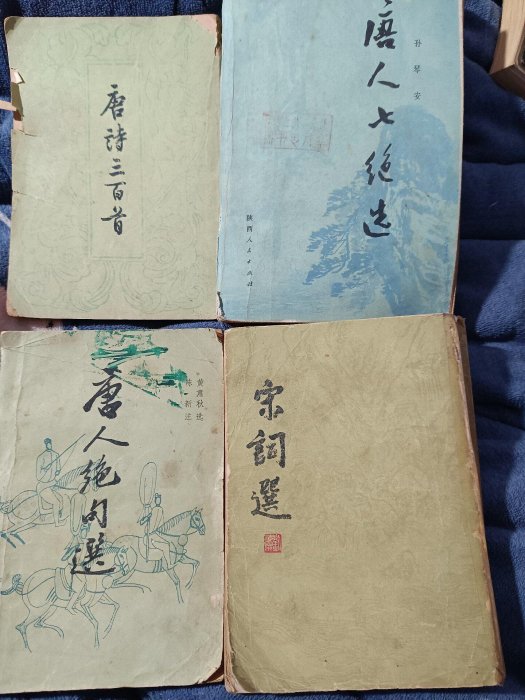 唐詩三百首
唐人七绝选
孙琴安
陕西人民出版社
唐人绝句選
黄肃秋选
陈新注
宋詞選